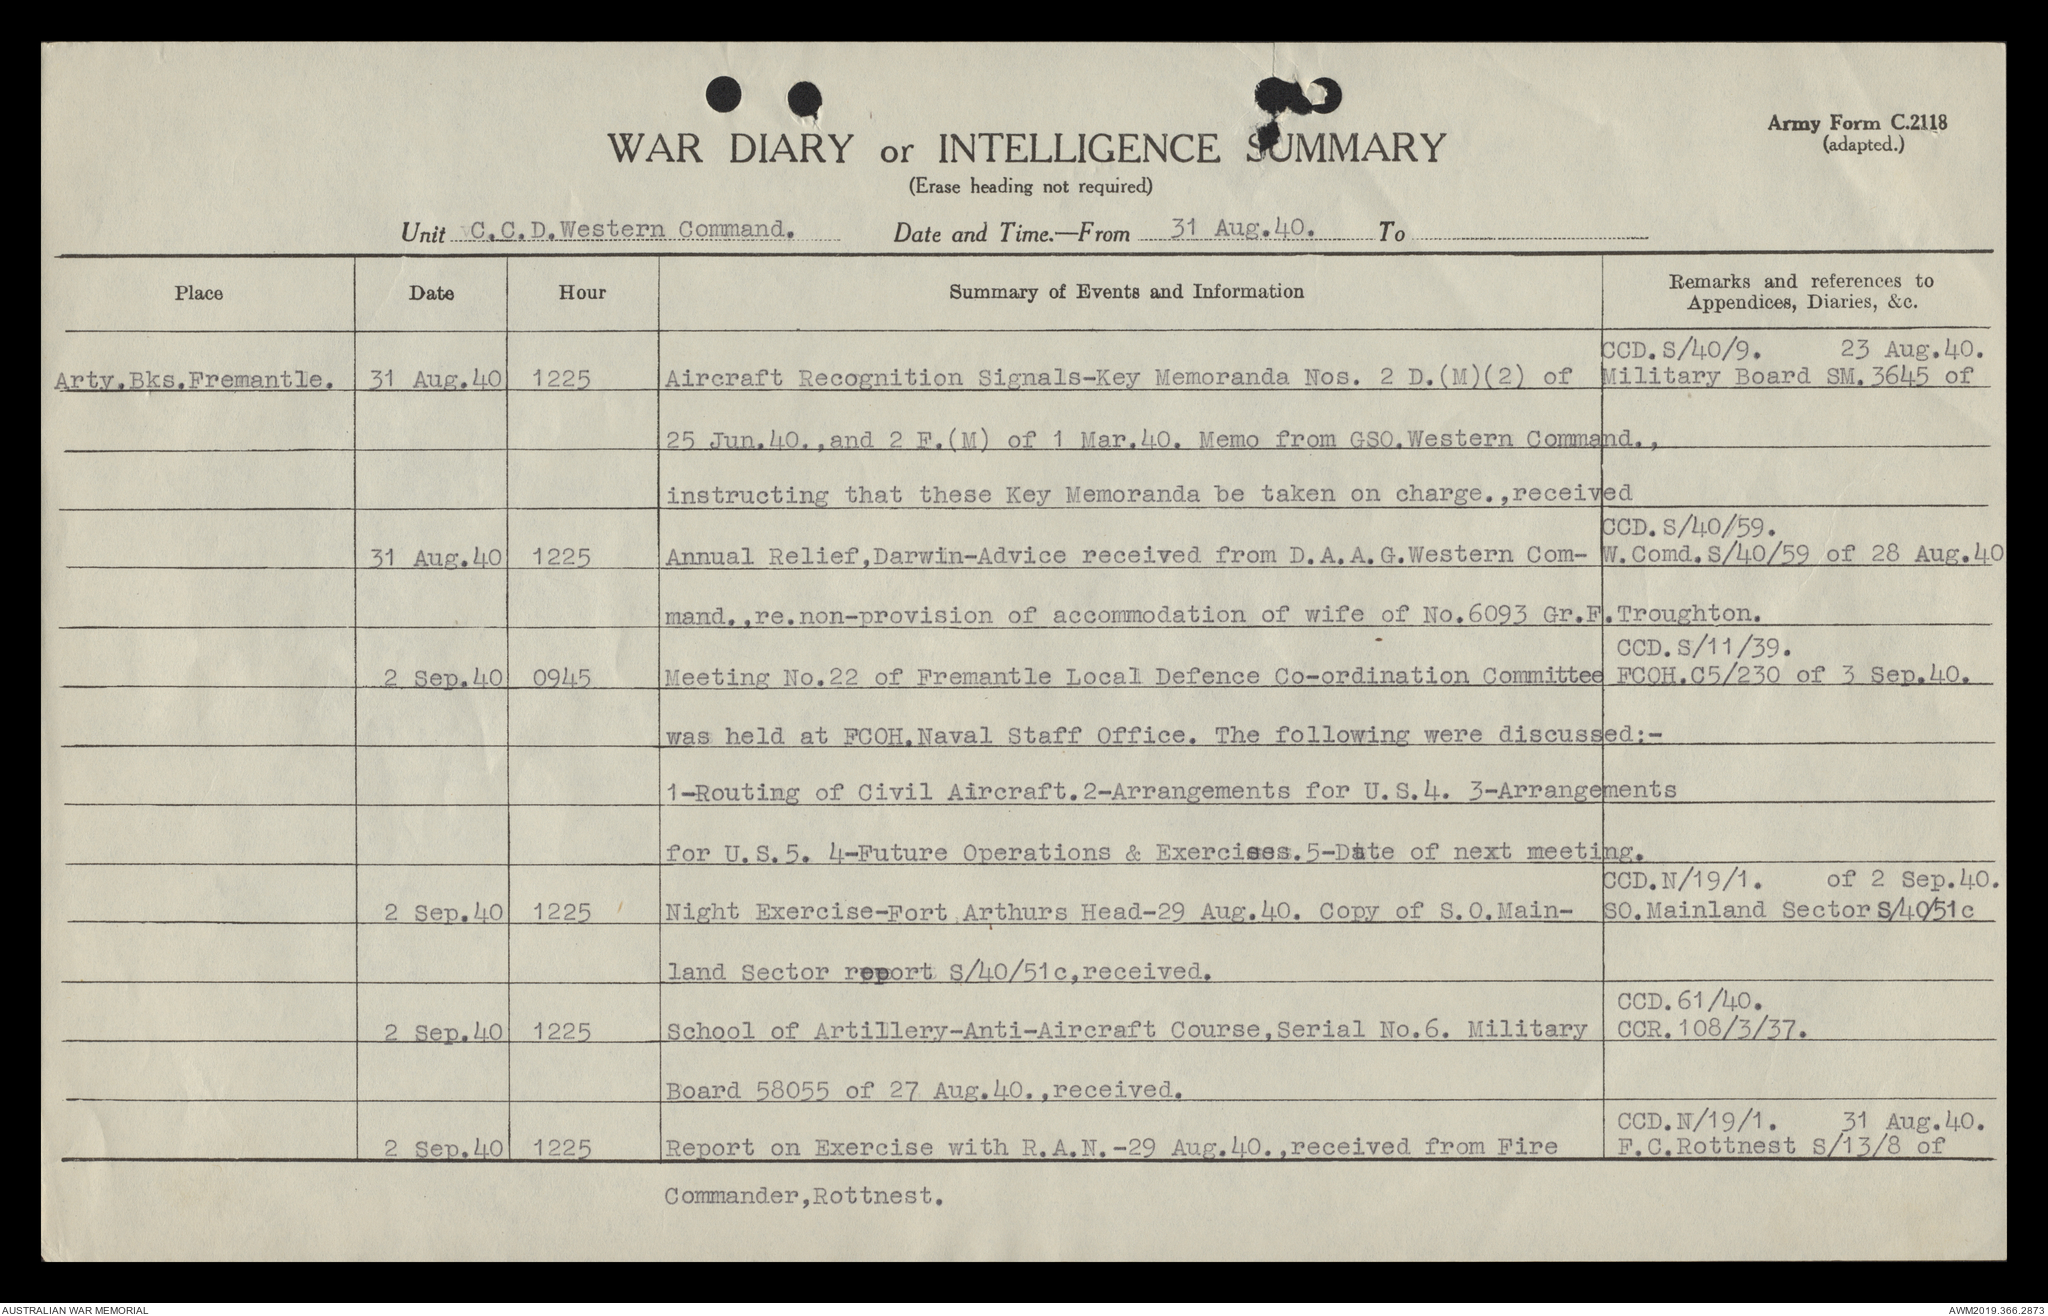 Army Form C.2118
(adapted.)
WAR DIARY or INTELLIGENCE SUMMARY
(Erase heading not required)
Unit C.C.D.Western Command. Date and Time.—From 31 Aug.40. To
Place Date Hour Summary of Events and Information Remarks and references to
Appendices, Diaries, &c.
CCD.S/40/9. 23 Aug.40.
Arty.Bks.Fremantle. 31 Aug.40 1225 Aircraft Recognition Signals-Key Memoranda Nos. 2 D.(M)(2) of Military Board SM.3645 of
25 Jun.40.,and 2 F.(M) of 1 Mar.40. Memo from GSO.Western Command.,
instructing that these Key Memoranda be taken on charge.,received
CCD.S/40/59.
31 Aug.40 1225 Annual Relief,Darwin-Advice received from D.A.A.G.Western Com- W.Comd.S/40/59 of 28 Aug.40
mand.,re.non-provision of accommodation of wife of No.6093 Gr.F.Troughton.
CCD.S/11/39.
2 Sep.40 0945 Meeting No.22 of Fremantle Local Defence Co-ordination Committee FCOH.C5/230 of 3 Sep.40.
was held at FCOH.Naval Staff Office. The following were discussed:-
1-Routing of Civil Aircraft.2-Arrangements for U.S.4. 3-Arrangements
for U.S.5. 4-Future Operations & Exercises.5-Date of next meeting.
CCD.N/19/1. of 2 Sep.40.
2 Sep.40 1225 Night Exercise-Fort Arthurs Head-29 Aug.40. Copy of S.O.Main- SO.Mainland Sector S/40/51c
land Sector report S/40/51c,received.
CCD.61/40.
2 Sep.40 1225 School of Artillery-Anti-Aircraft Course,Serial No.6. Military CCR.108/3/37.
Board 58055 of 27 Aug.40.,received.
CCD.N/19/1. 31 Aug.40.
2 Sep.40 1225 Report on Exercise with R.A.N.-29 Aug.40.,received from Fire F.C.Rottnest S/13/8 of
Commander,Rottnest.
AUSTRALIAN WAR MEMORIAL AWM2019.366.2873